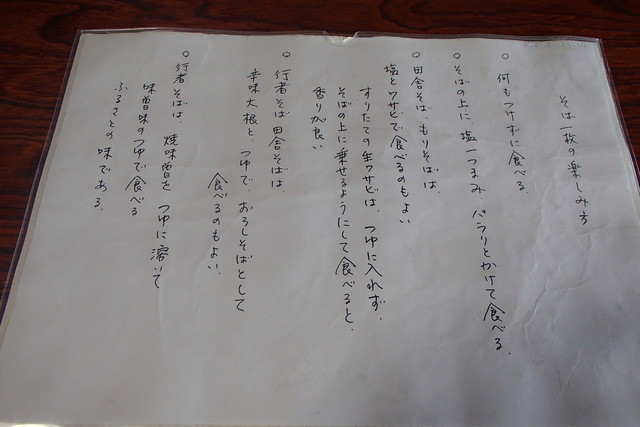 そば一枚の楽しみ方
○ 何もつけずに食べる.
○ そばの上に、塩一つまみ、パラリとかけて食べる.
○ 田舎そば、もりそばは、
塩とワサビで食べるのもよい
すりたての生ワサビは、つゆに入れず、
そばの上に乗せるようにして食べると、
香りが良い
○ 行者そば田舎そばは、
辛味大根と、つゆで、おろしそばとして
食べるのもよい.
○ 行者そばは、焼味噌を つゆに溶いて
味噌味のつゆで食べる
ふるさとの味である.